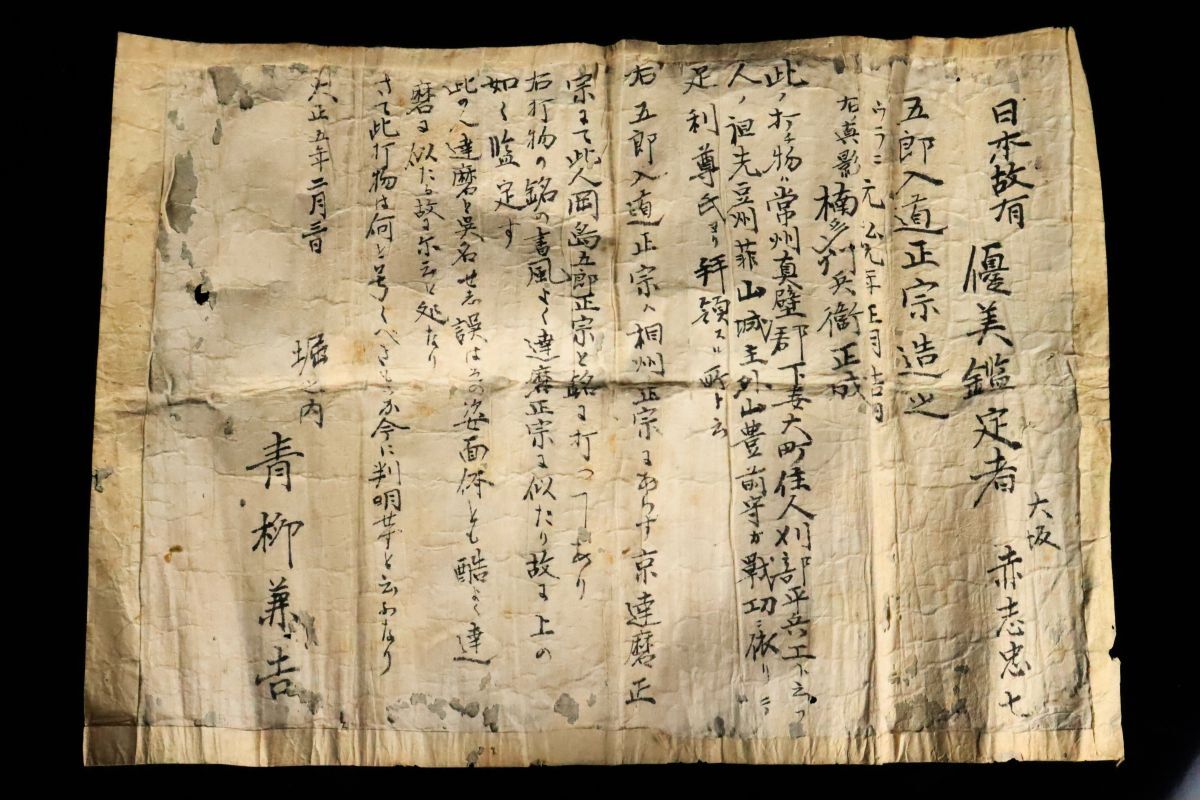 日本故有
優美鑑定者
大坂
赤志忠七
五郎入道正宗造之
ウラニ元弘元年正月吉日
左真影
楠
兵衞正成
此ノ打チ物ハ常州真壁郡下妻大町住人刈部平兵工ト云フ
人ノ祖先豆州菲山城主外山豊前守ガ戰功ニ依リ
足利尊氏ヨリ拝領スル所ト云
右五郎入道正宗ハ相州正宗にあらす京達磨正
宗にて此人岡島五郎正宗と銘に打つ事あり
右打物の銘の書風よく達磨正宗に似たり故に上の
如く監定す
此の人達磨と異名せし誤はその姿面体とも酷よく達
磨に似たる故に尓云と処なり
さて此打物は何と号くべきものか今に判明せずと云ふなり
大正五年二月三日
堀之内
青柳兼吉